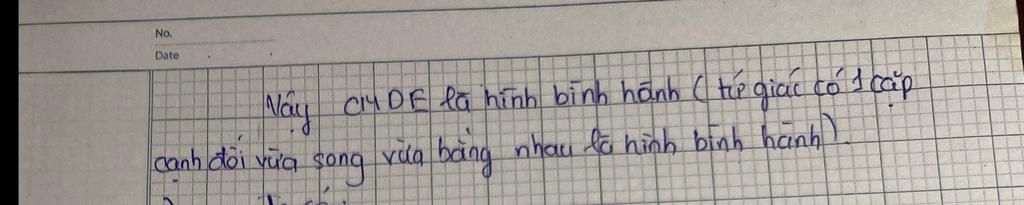 No.
Date
Vậy CMDE là hình bình hành (tứ giác có 1 cặp
cạnh đối vừa song vừa bằng nhau là hình bình hành).